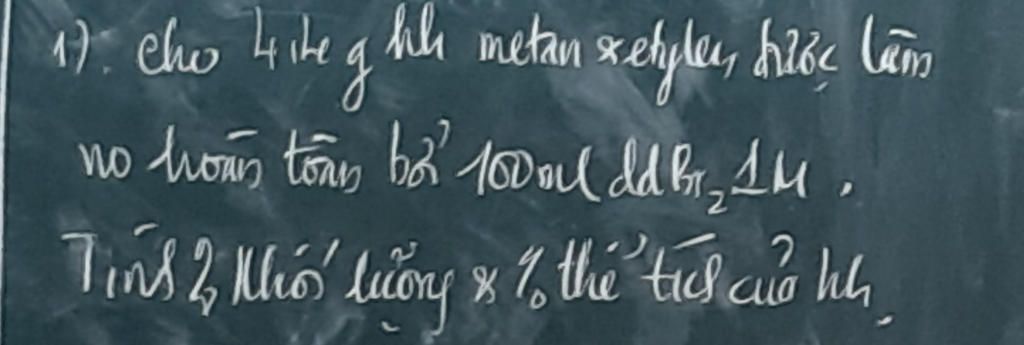 1). Cho 4,4 g hh metan & etylen được làm
no hoàn toàn bởi 100ml dd Br₂ 1M.
Tính % khối lượng & % thể tích của hh.